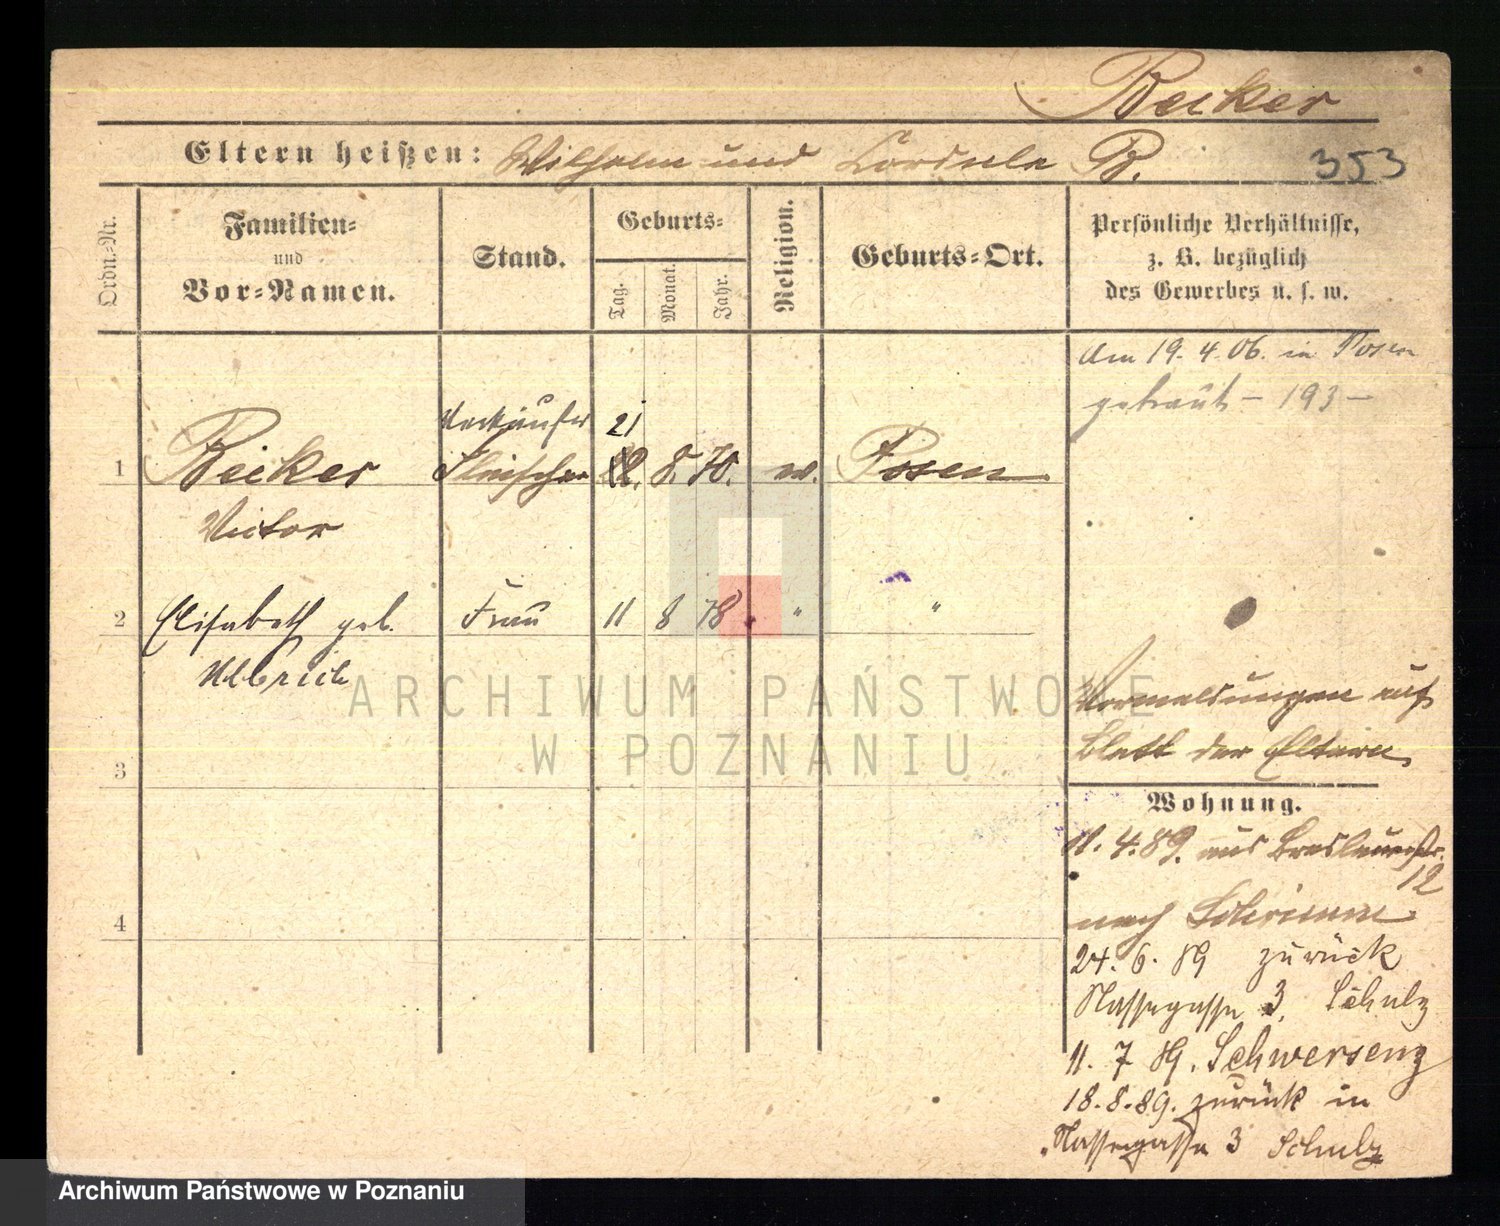 Becker
Eltern heißen: Wilhelm und B.
353
Ordn.-Nr.
Familien-
und
Vor-Namen.
Stand.
Geburts-
Tag.
Monat.
Jahr.
Religion.
Geburts-Ort.
Persönliche Verhältnisse,
z. B. bezüglich
des Gewerbes u. s. w.
Am 19.4.06. in Posen
getraut - 193 -
Verkäufer 21
1 Becker Fleischer 8. 70. ev. Posen
Victor
2 Elisabeth geb. Frau 11 8 78 " "
Ulbrich
Vormeldungen auf
Blatt der Eltern
3
Wohnung.
11.4.89. aus Breslauerstr.
12
4
nach Schrimm
24.6.89 zurück
Nassegasse 3. Schulz
11.7.89. Schwersenz
18.8.89. zurück in
Nassegasse 3 Schulz
ARCHIWUM PAŃSTWOWE
W POZNANIU
Archiwum Państwowe w Poznaniu